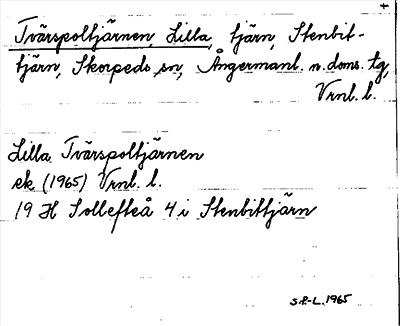 +
Tvärspoltjärnen, Lilla, tjärn, Stenbit-
tjärn, Skorpeds sn, Ångermanl. n. doms. tg,
Vrnl. l.
Lilla Tvärspoltjärnen
ek (1965) Vrnl. l.
19 H Sollefteå 4 i Stenbittjärn
S.P-L. 1965